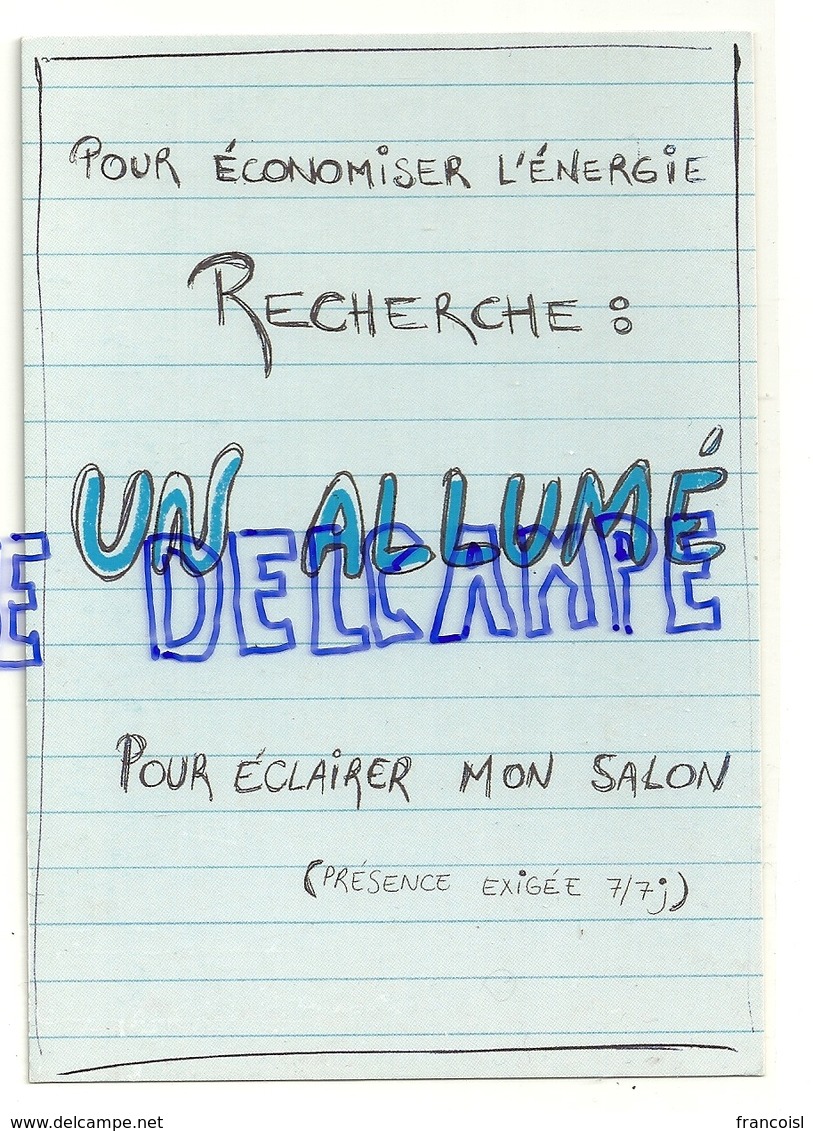 POUR ÉCONOMISER L'ÉNERGIE
RECHERCHE :
UN ALLUMÉ
DELCAMPE
POUR ÉCLAIRER MON SALON
(PRÉSENCE EXIGÉE 7/7j)
www.delcampe.net francoisl